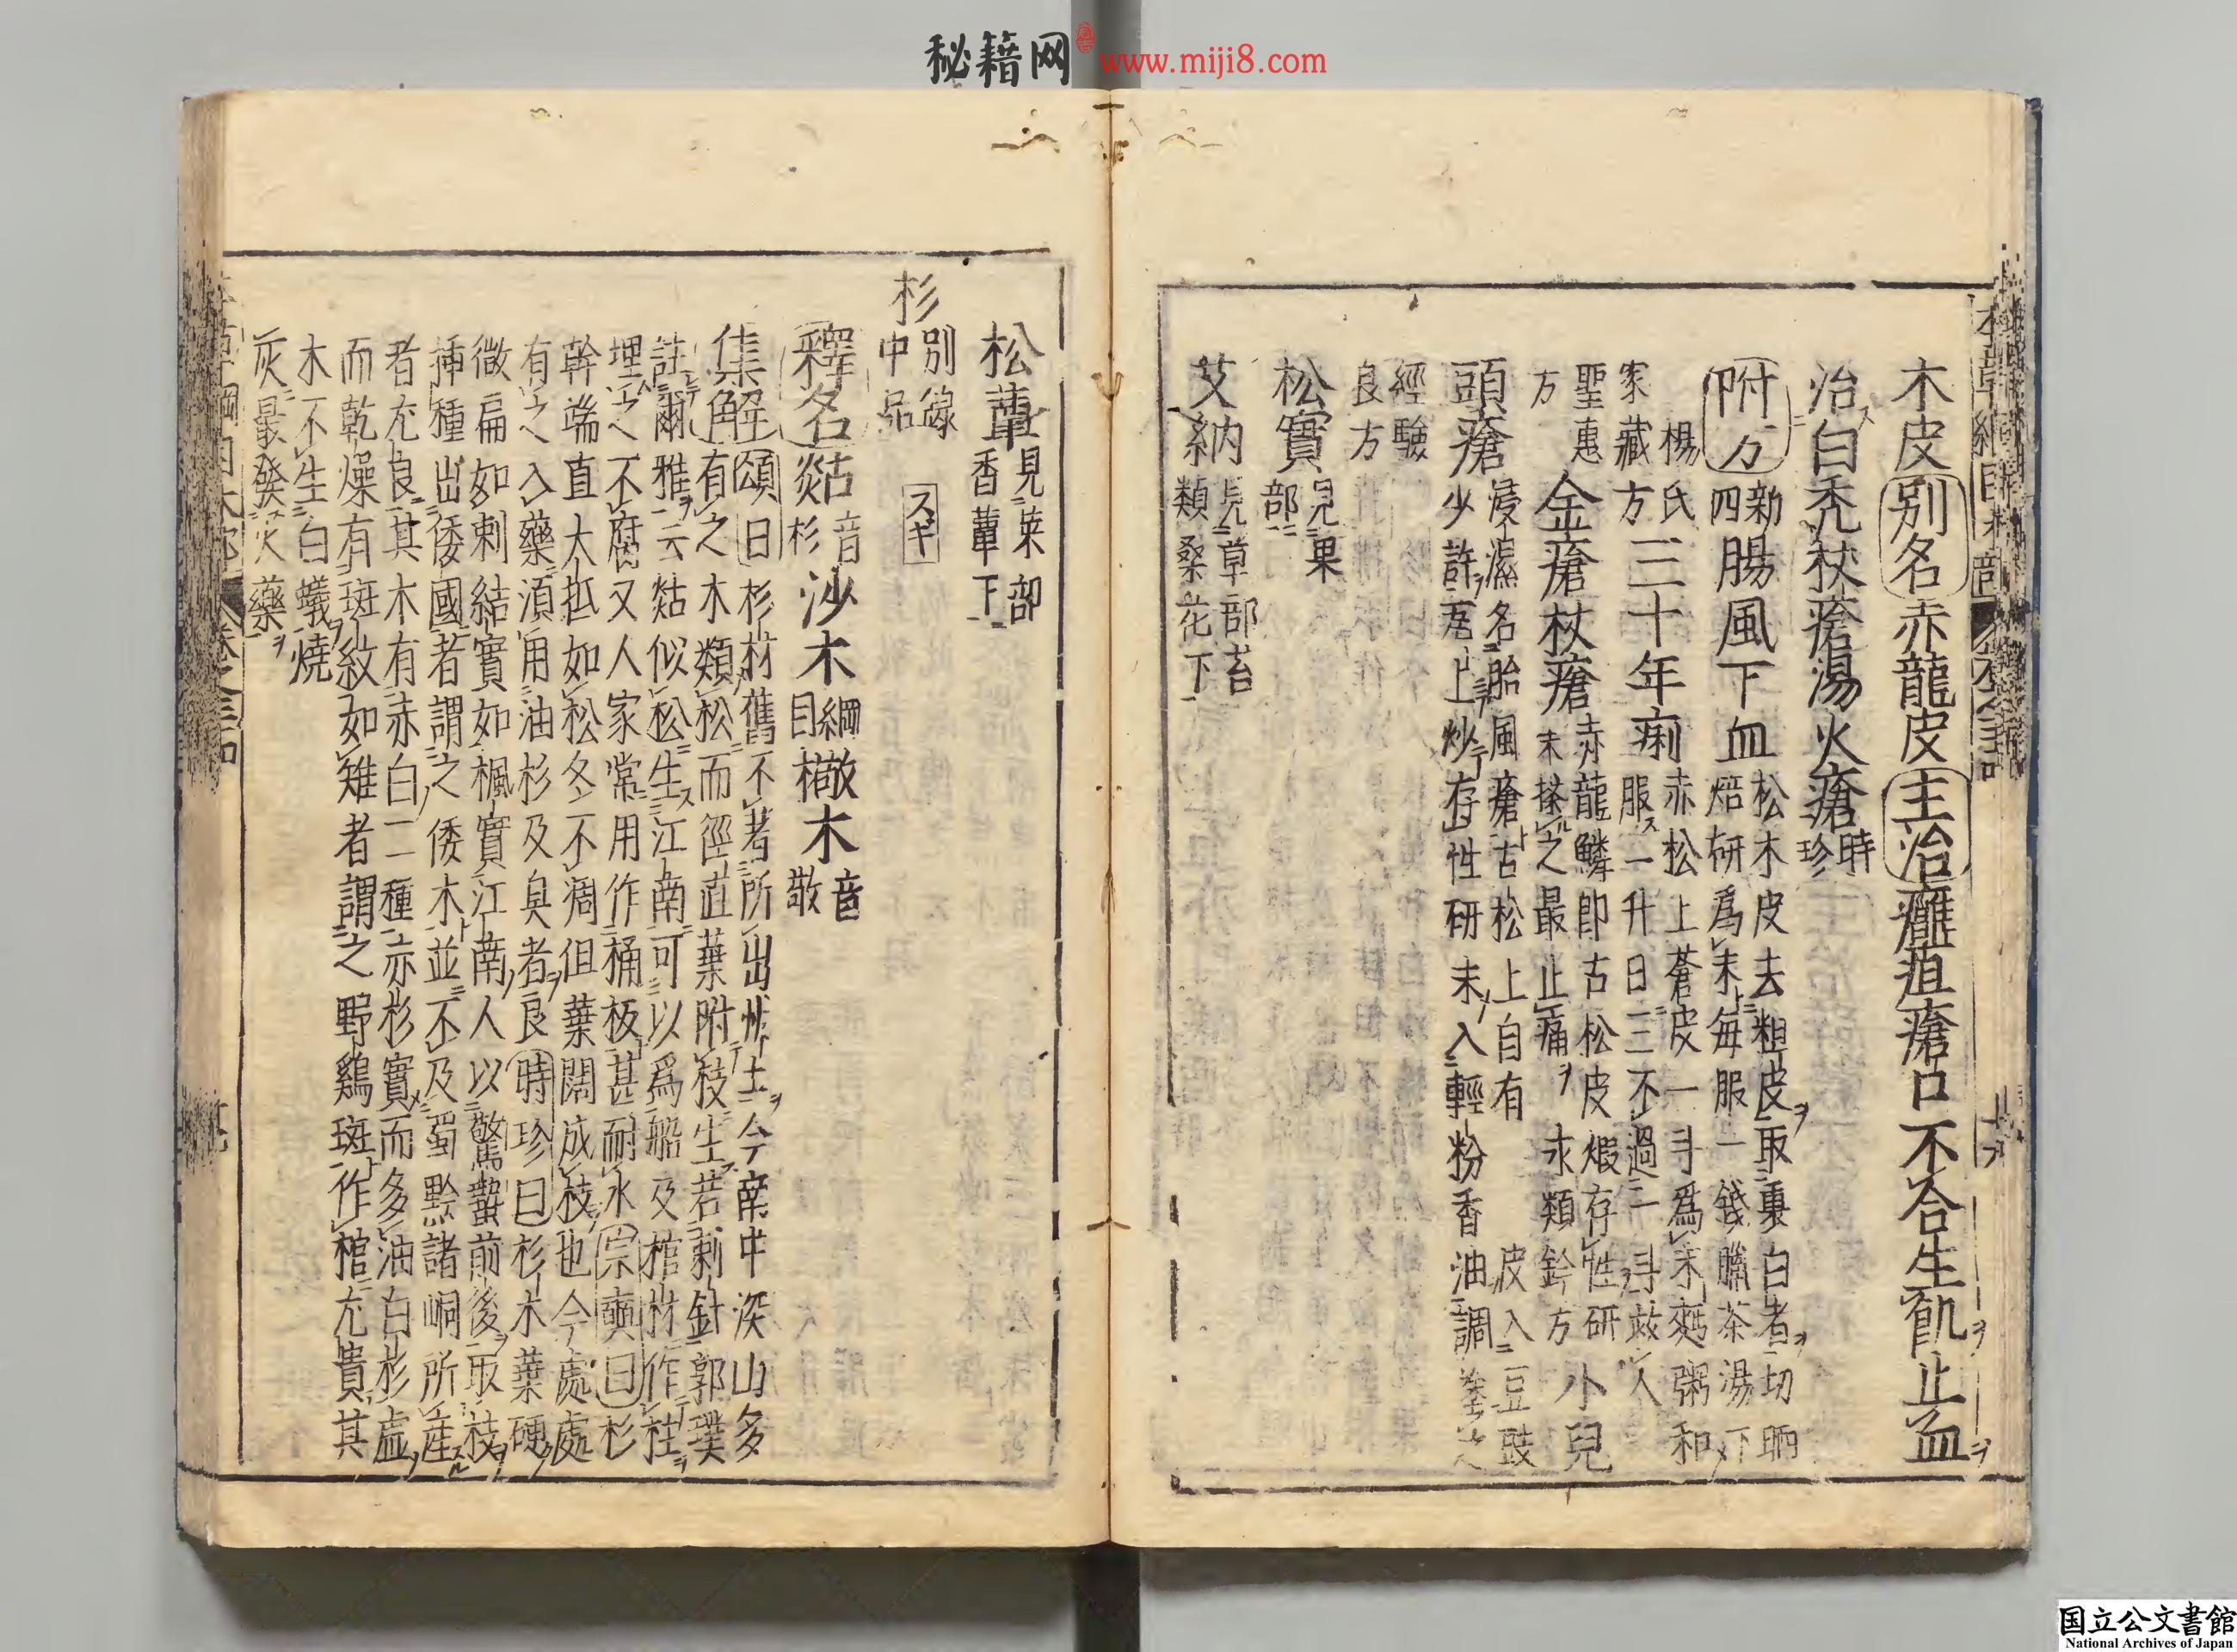 秘籍网 www.miji8.com
木皮 別名 赤龍皮 主治 癰疽瘡口不合生肌止血
治白禿杖瘡湯火瘡 時珍
附方 新四 腸風下血 松木皮去粗皮取裏白者切晒焙研爲末每服一錢臘茶湯下
楊氏家藏方 三十年痢 赤松上蒼皮一斗爲末麪粥和服一升日三不過一斗救人
聖惠方 金瘡杖瘡 赤龍鱗卽古松皮煆存性研末搽之最止痛 永類鈐方 小兒
頭瘡 浸濕名胎風瘡古松上自有皮入豆豉少許瓦上炒存性研末入輕粉香油調塗之
經驗良方
松實 見果部
艾納 見草部苔類桑花下
松蕈 見菜部香蕈下
杉 別錄中品 スギ
釋名 煔 音杉 沙木 綱目 橵木 音敬
集解 頌曰 杉材舊不著所出州土今南中深山多
有之木類松而徑直葉附枝生若刺針郭璞
註爾雅云煔似松生江南可以爲船及棺材作柱
埋之不腐又人家常用作桶板甚耐水 宗奭曰 杉
幹端直大抵如松冬不凋但葉闊成枝也今處處
有之入藥須用油杉及臭者良 時珍曰 杉木葉硬
微扁如刺結實如楓實江南人以驚蟄前後取枝
挿種出倭國者謂之倭木並不及蜀黔諸峒所產
者尤良其木有赤白二種赤杉實而多油白杉虛
而乾燥有斑紋如雉者謂之野雞斑作棺尤貴其
木不生白蟻燒
灰最發火藥
国立公文書館
National Archives of Japan